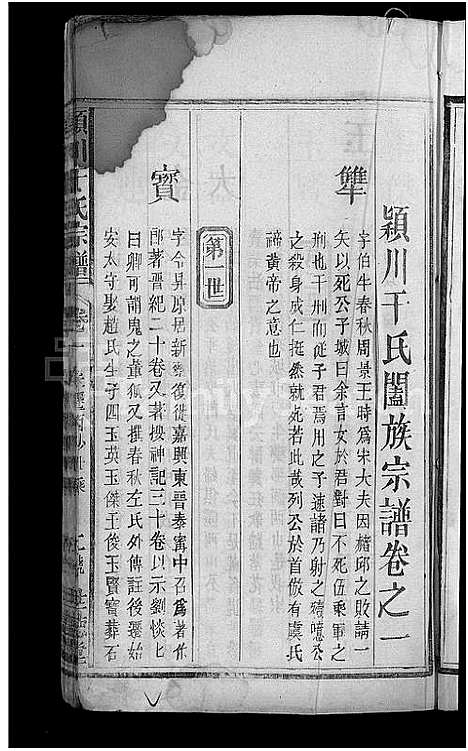 潁川干氏闔族宗譜卷之一
犨
字伯牛春秋周景王時為宋大夫因赭邱之敗請一
矢以死公子城曰余言女於君對曰不死伍乘軍之
刑也干刑而從子君焉用之子速諸乃射之殪噫公
之殺身成仁挺然就死若此哉列公於首倣有虞氏
禘黃帝之意也
第一世
寶
字令昇原居新蔡復徙嘉興東晉泰寗中召為著作
郎著晉紀二十卷又著搜神記三十卷以示劉惔匕
曰卿可謂鬼之董狐又撰春秋左氏外傳註後遷始
安太守娶趙氏生子四玉英玉傑玉俊玉賢寶葬石
潁川干氏宗譜
卷一